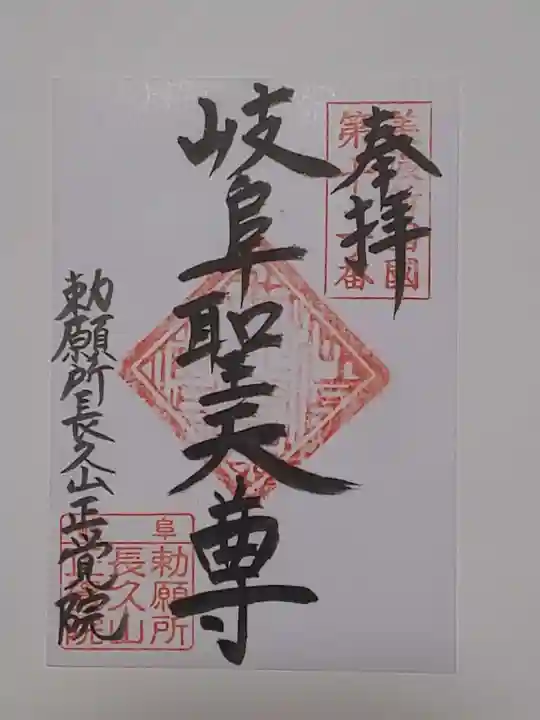 奉拝
岐阜聖天尊
勅願所長久山正覚院
阜
勅願所
長久山